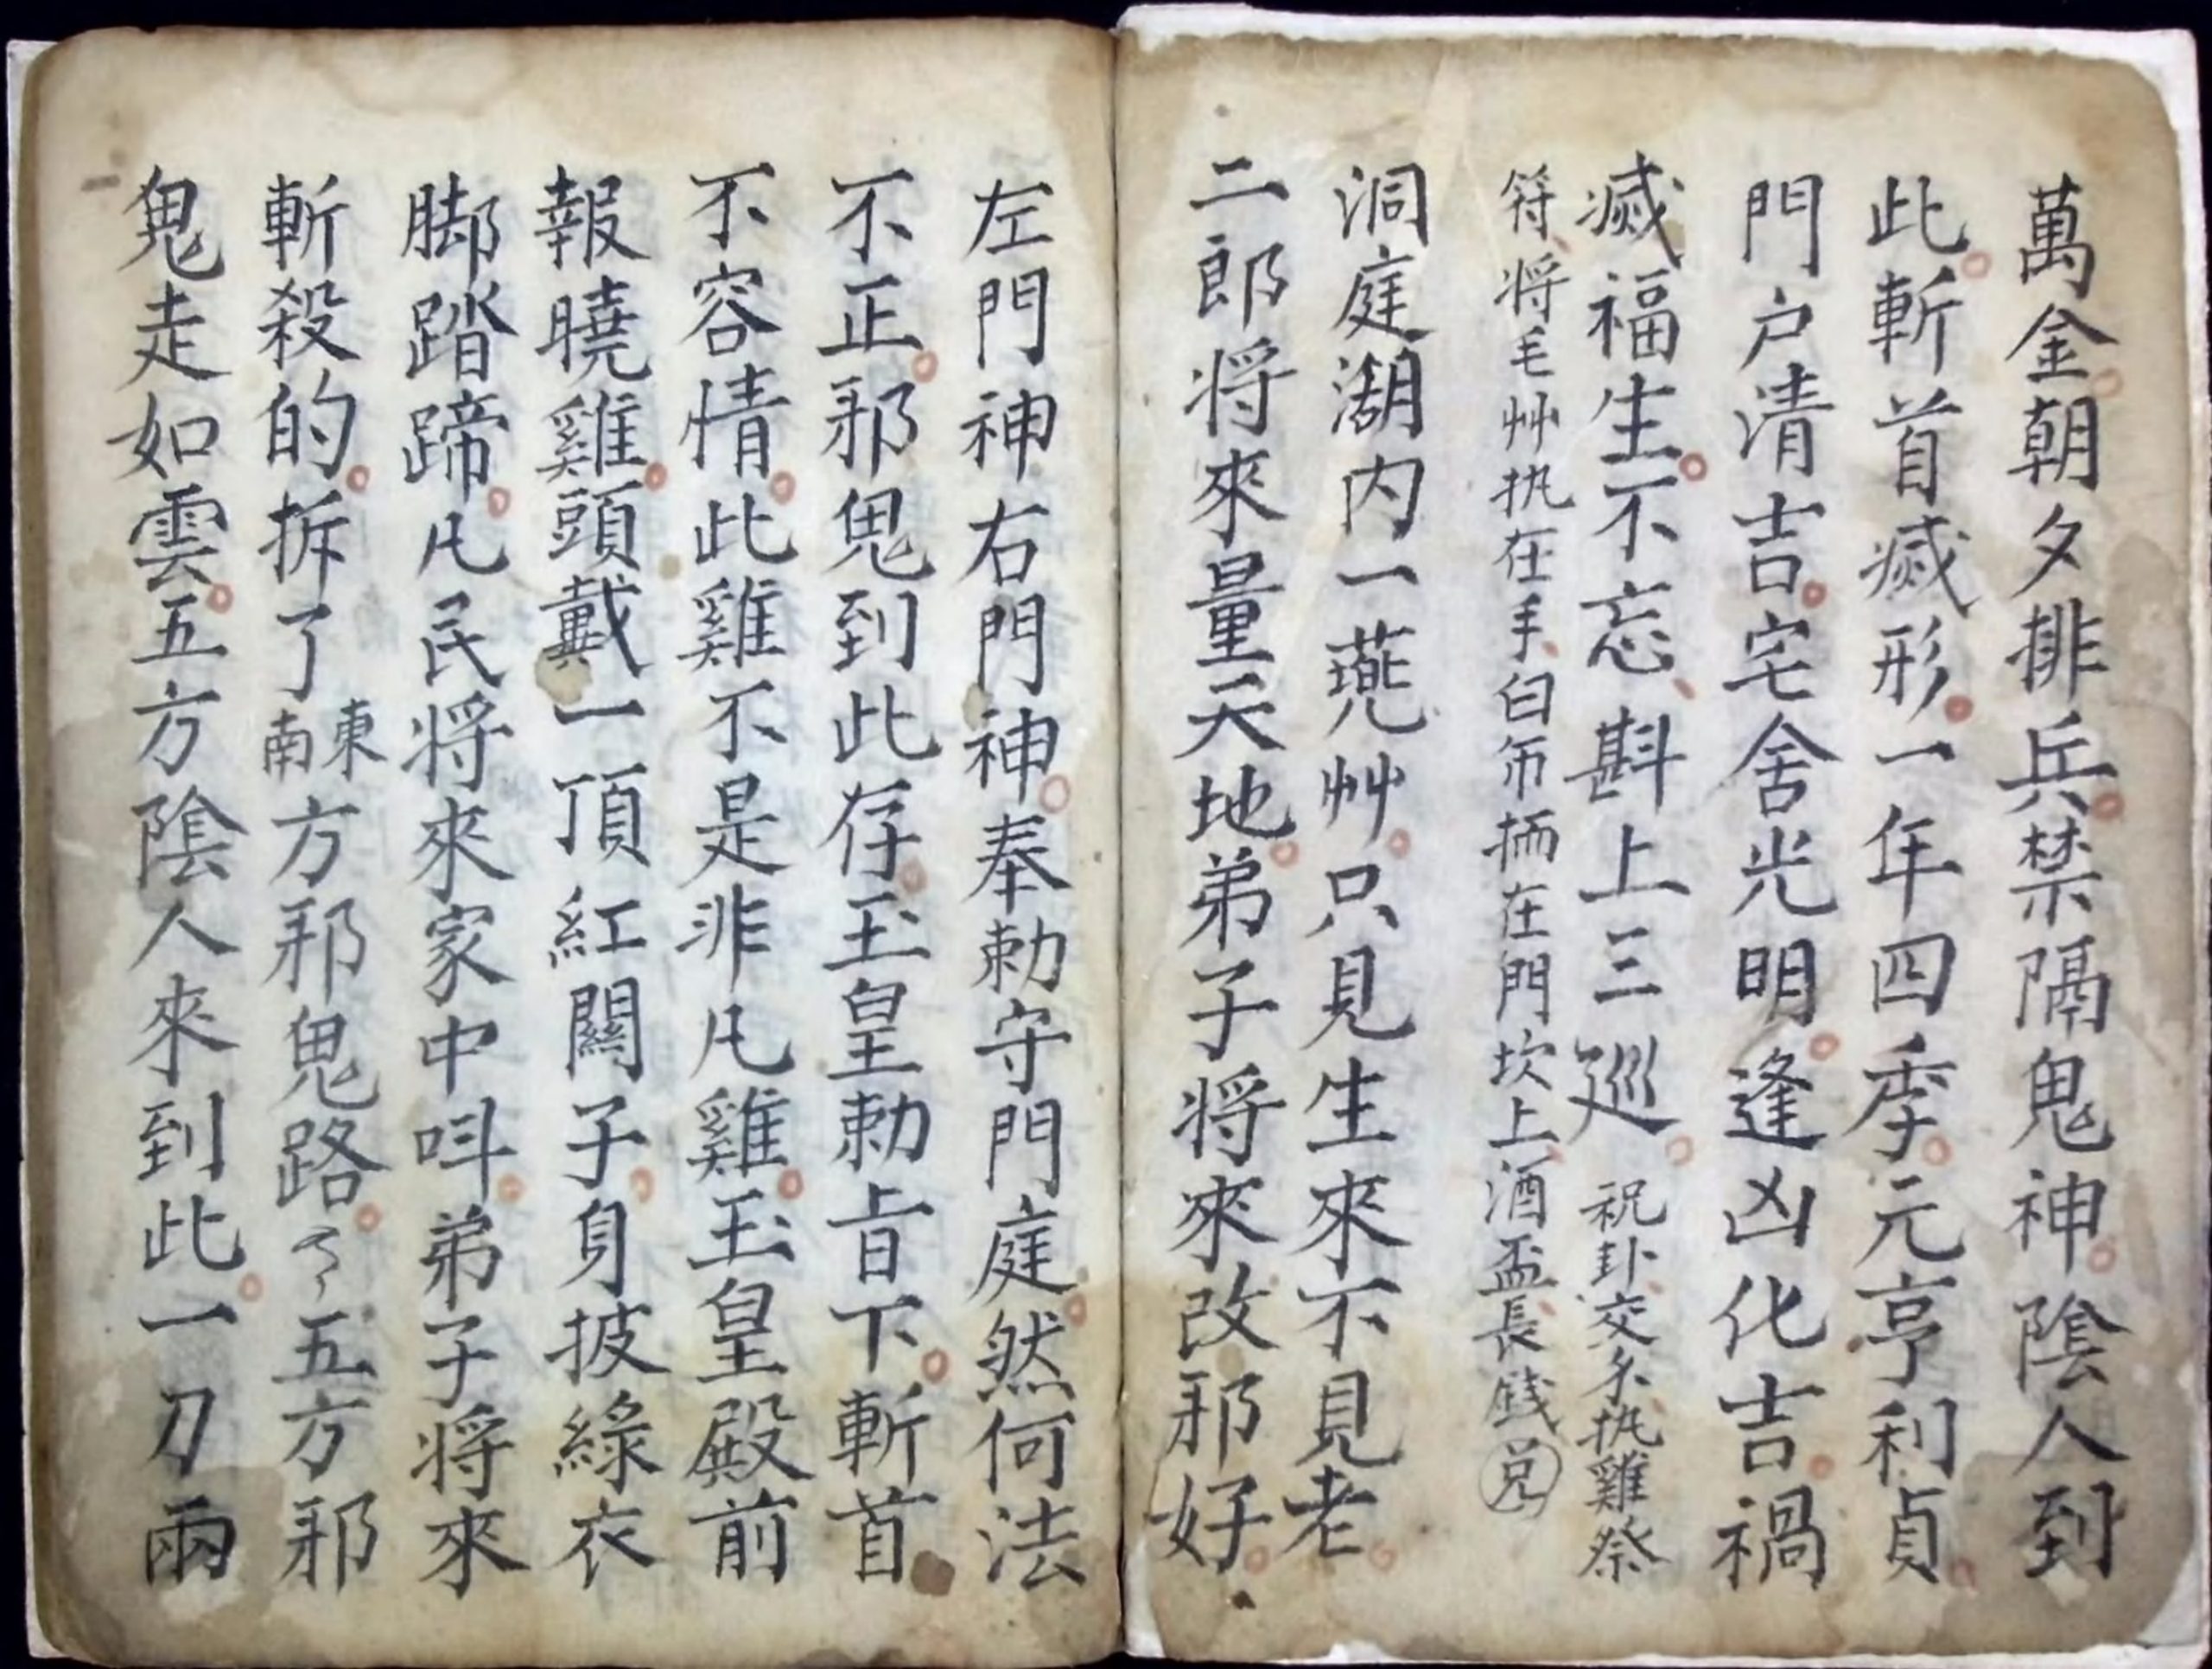 萬金朝夕排兵禁隔鬼神陰人到
此斬首滅形一年四季元亨利貞
門户清吉宅舍光明逢凶化吉禍
滅福生不忘斟上三巡祝卦交糸执雞祭
符将毛艸执在手白帋抪在門坎上酒盃長錢兑
洞庭湖内一蔸艸只見生來不見老
二郎将來量天地弟子将來改邪好
左門神右門神奉勅守門庭然何法
不正邪鬼到此存玉皇勅旨下斬首
不容情此雞不是非凡雞玉皇殿前
報曉雞頭戴一頂紅関子身披綠衣
脚踏蹄凡民将來家中呌弟子将來
斬殺的拆了東南方邪鬼路了五方邪
鬼走如雲五方陰人來到此一刀兩